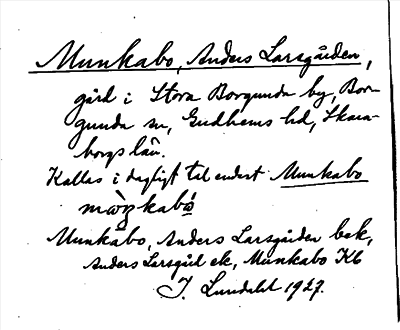 Munkabo, Anders Larsgården,
gård i Stora Borgunda by, Bor-
gunda sn, Gudhems hd, Skara-
borgs län.
Kallas i dagligt tal endast Munkabo
Munkabo, Anders Larsgården bek,
Anders Larsgård ek, Munkabo Kb
I. Lundahl 1927.